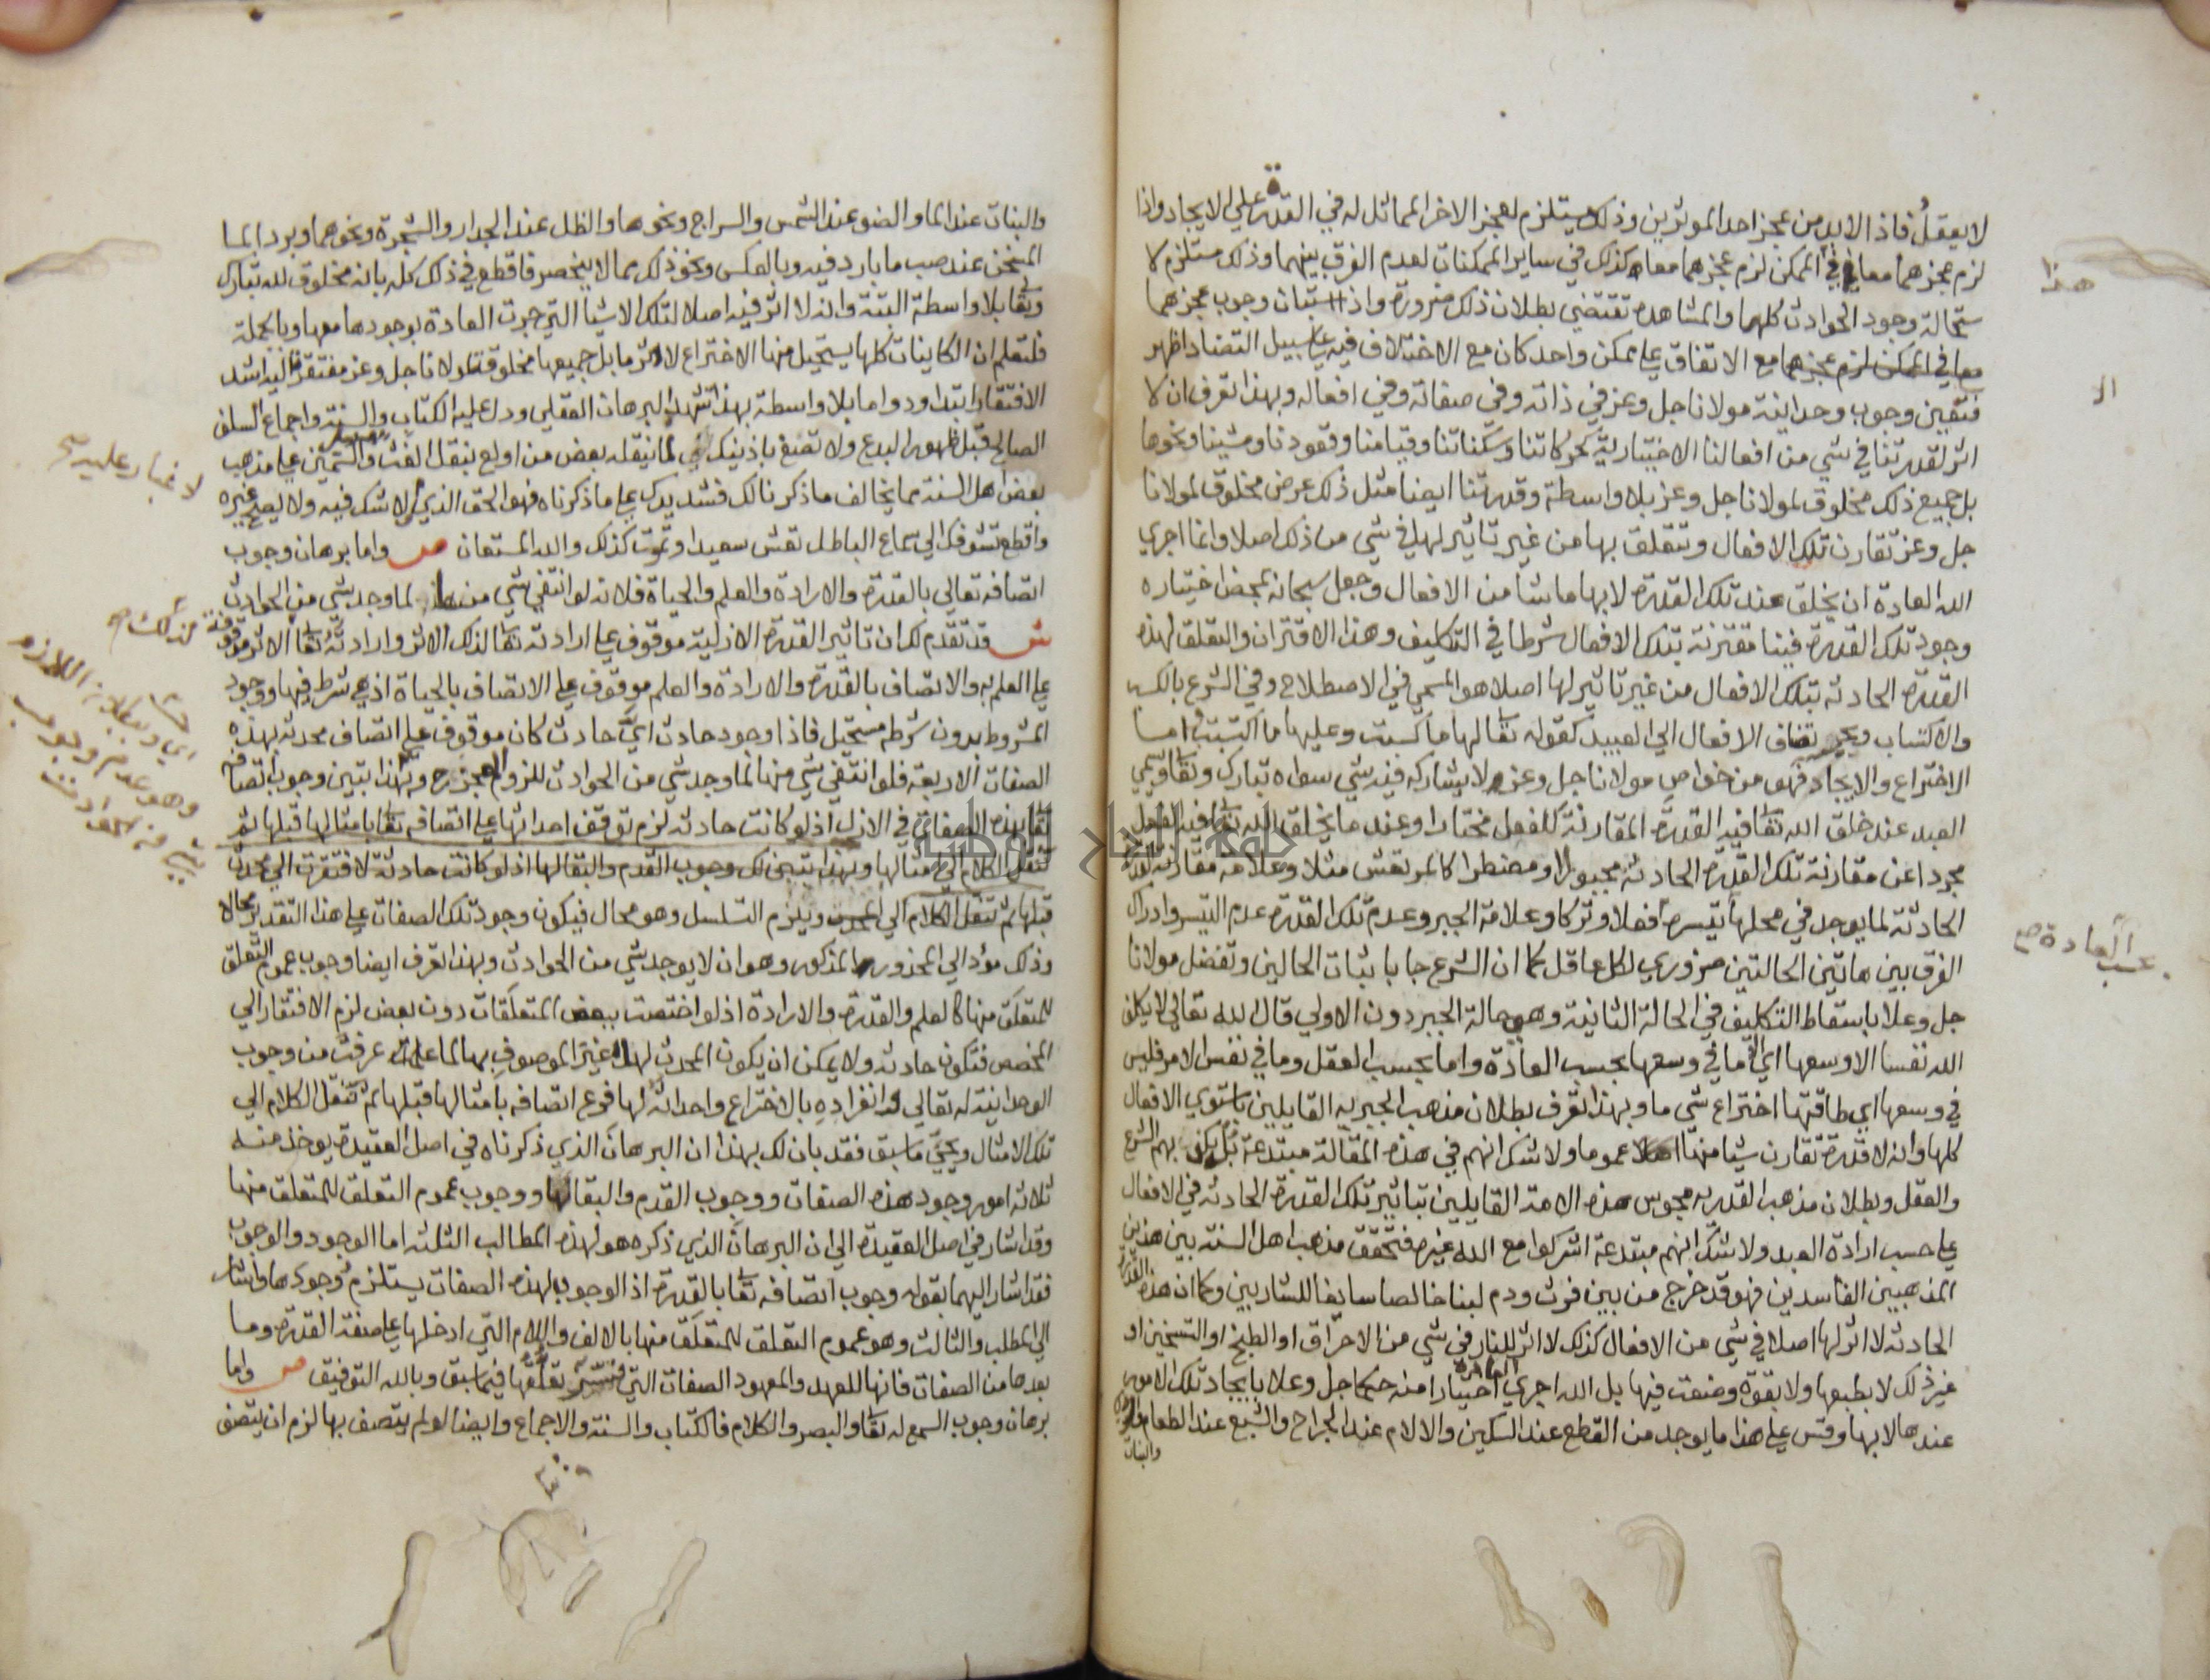 لا يعقل فاذا لابد من عجز احد الموثرين وذلك يستلزم لعجز الاخر المماثل له في القدرة علي الايجاد واذا
لزم عجزهما معا في الممكن لزم عجزهما معا كذلك في ساير الممكنات لعدم الفرق بينهما وذلك مستلزم لا
ستحالة وجود الحوادث كلها والمشاهدة تقتضي بطلان ذلك ضرورة واذا استبان وجوب عجزهما
معا في الممكن لزم عجزهما مع الاتفاق علي ممكن واحد كان مع الاختلاف فيه علي سبيل التضاد اظهر
فتعين وجوب وحدانية مولانا جل وعز في ذاته وفي صفاته وفي افعاله وبهذا تعرف ان لا
اثر لقدرتنا في شي من افعالنا الاختيارية كحركاتنا وسكناتنا وقيامنا وقعودنا ومشينا ونحوها
بل جميع ذلك مخلوق لمولانا جل وعز بلا واسطة وقدرتنا ايضا مثل ذلك عرض مخلوق لمولانا
جل وعز تقارن تلك الافعال وتتعلق بها من غير تاثير لها في شي من ذلك اصلا وانما اجري
الله العادة ان يخلق عند تلك القدرة لا بها ما شا من الافعال وجعل سبحانه بمحض اختياره
وجود تلك القدرة فينا مقترنة بتلك الافعال شرطا في التكليف وهذا الاقتران والتعلق لهذه
القدرة الحادثه بتلك الافعال من غير تاثير لها اصلا هو المسمي في الاصطلاح وفي الشرع بالكسب
والاكتساب وبحسبه تضاف الافعال الي العبيد كقوله تعا لها ما كسبت وعليها ما اكتسبت اما
الاختراع والايجاد فهو من خواص مولانا جل وعز لا يشاركه فيه شي سواه تبارك وتعا ويسمي
العبد عند خلق الله تعا فيه القدرة المقارنة للفعل مختارا وعند ما يخلق الله تعا فيه الفعل
مجردا عن مقارنة تلك القدرة الحادثة مجبورا ومضطرا كالمرتعش مثلا وعلامة مقارنة القدرة
الحادثة لما يوجد في محلها تيسره فعلا وتركا وعلامة الجبر وعدم تلك القدرة عدم التيسر وادراك
الفرق بين هاتين الحالتين ضروري لكل عاقل كما ان الشرع جا باثبات الحالين وتفضل مولانا
جل وعلا باسقاط التكليف في الحالة الثانية وهي حالة الجبر دون الاولي قال الله تعالي لا يكلف
الله نفسا الا وسعها اي الا ما في وسعها بحسب العادة واما بحسب العقل وما في نفس الامر فليس
في وسعها اي طاقتها اختراع شي ما وبهذا تعرف بطلان مذهب الجبريه القايلين باستوي الافعال
كلها وانه لا قدرة تقارن شيا منها عموما ولا شك انهم في هذه المقالة مبتدعة بهم الشرع
والعقل وبطلان مذهب القدريه مجوس هذه الامة القايلين بتاثير تلك القدرة الحادثه في الافعال
علي حسب ارادة العبد ولا شك انهم مبتدعة اشركوا مع الله غيره فتحقق مذهب اهل السنة بين هذين
المذهبين الفاسدين فهو قد خرج من بين فرث ودم لبنا خالصا سايغا للشاربين وكما ان هذه القدرة
الحادثه لا اثر لها اصلا في شي من الافعال كذلك لا اثر للنار في شي من الاحراق او الطبخ او التسخين او
غير ذلك لا بطبعها ولا بقوة وضعت فيها بل الله اجري العادة اختيارا منه جل وعلا بايجاد تلك الامور
عندها لا بها وقس علي هذا ما يوجد من القطع عند السكين والالام عند الجراح والشبع عند الطعام والري
والنبات
هذا
الا
بحسب العادة صح
والنبات عند الما والضو عند الشمس والسراج ونحوها والظل عند الجدار والشجرة ونحوهما وبرد الما
المسخن عند صب ما بارد فيه وبالعكس ونحو ذلك مما لا ينحصر فاقطع في ذلك كله بانه مخلوق لله تبارك
وتعا بلا واسطة البتة وانه لا اثر فيه اصلا لتلك الاشيا التي جرت العادة بوجودها معها وبالجملة
فلتعلم ان الكاينات كلها يستحيل منها الاختراع لاثر ما بل جميعها مخلوقة لمولانا جل وعز مفتقرة اليه اشد
الافتقار ابتدا ودواما بلا واسطة بهذا شهد البرهان العقلي ودل عليه الكتاب والسنة واجماع السلف
الصالح قبل ظهور البدع ولا تصغ باذنيك لما ينقله بعض من اولع بنقل الغث والسمين علي مذهب
بعض اهل السنة مما يخالف ما ذكرنا لك فشد يدك علي ما ذكرناه فهو الحق الذي لا شك فيه ولا يصح غيره
واقطع تشوفك الي سماع الباطل تعش سعيدا وتموت كذلك والله المستعان ص واما برهان وجوب
اتصافه تعالي بالقدرة والارادة والعلم والحياة فلانه لو انتفي شي من لما وجد شي من الحوادث
ش قد تقدم لك ان تاثير القدرة الازلية موقوف علي ارادته تعا لذلك الاثر وارادته تعا الاثر موقوفة
علي العلم به والاتصاف بالقدرة والارادة والعلم موقوف علي الاتصاف بالحياة اذ هي شرط فيها ووجود
المشروط بدون شرطه مستحيل فاذا وجود حادث اي حادث كان موقوف علي اتصاف محدثه بهذه
الصفات الاربعة فلو انتفي شي منها لما وجد شي من الحوادث للزوم العجز ح وبهذا يتبين وجوب اتصافه
تعا بهذه الصفات في الازل اذ لو كانت حادثه لزم توقف احداثها علي اتصافه تعا بامثالها قبلها ثم
تنقل الكلام الي امثالها وبهذا يتبين لك وجوب القدم والبقا لها اذ لو كانت حادثة لافتقرت الي محدث
قبلها ثم تنقل الكلام الي المحدث ويلزم التسلسل وهو محال فيكون وجود تلك الصفات علي هذا التقدير محالا
وذلك مؤد الي المحذور المذكور وهو ان لا يوجد شي من الحوادث وبهذا تعرف ايضا وجوب عموم التعلق
للمتعلق منها كالعلم والقدرة والارادة اذ لو اختصت ببعض المتعلقات دون بعض لزم الافتقار الي
المخصص فتكون حادثه ولا يمكن ان يكون المحدث لها غير الموصوف بها لما عرفت من وجوب
الوحدانية له تعالي وانفراده بالاختراع واحداثه لها فرع اتصافه بامثالها قبلها ثم تنقل الكلام الي
تلك الامثال ويجي ما سبق فقد بان لك بهذا ان البرهان الذي ذكرناه في اصل العقيدة يوخذ منه
ثلاثه امور وجود هذه الصفات ووجوب القدم والبقا لها ووجوب عموم التعلق للمتعلق منها
وقد اشار في اصل العقيدة الي ان البرهان الذي ذكره هو لهذه المطالب الثلثه اما الوجود والوجوب
فقد اشار اليهما بقوله وجوب اتصافه تعا بالقدرة اذ الوجوب لهذه الصفات يستلزم وجودها واشار
الي المطلب والثالث وهو عموم التعلق للمتعلق منها بالالف واللام التي ادخلها علي صفة القدرة وما
بعدها من الصفات فانها للعهد والمعهود الصفات التي تعلقها فيما سبق وبالله التوفيق ص واما
برهان وجوب السمع له تعا والبصر والكلام فالكتاب والسنة والاجماع وايضا لو لم يتصف بها لزم ان يتصف
لا غبار عليه صح